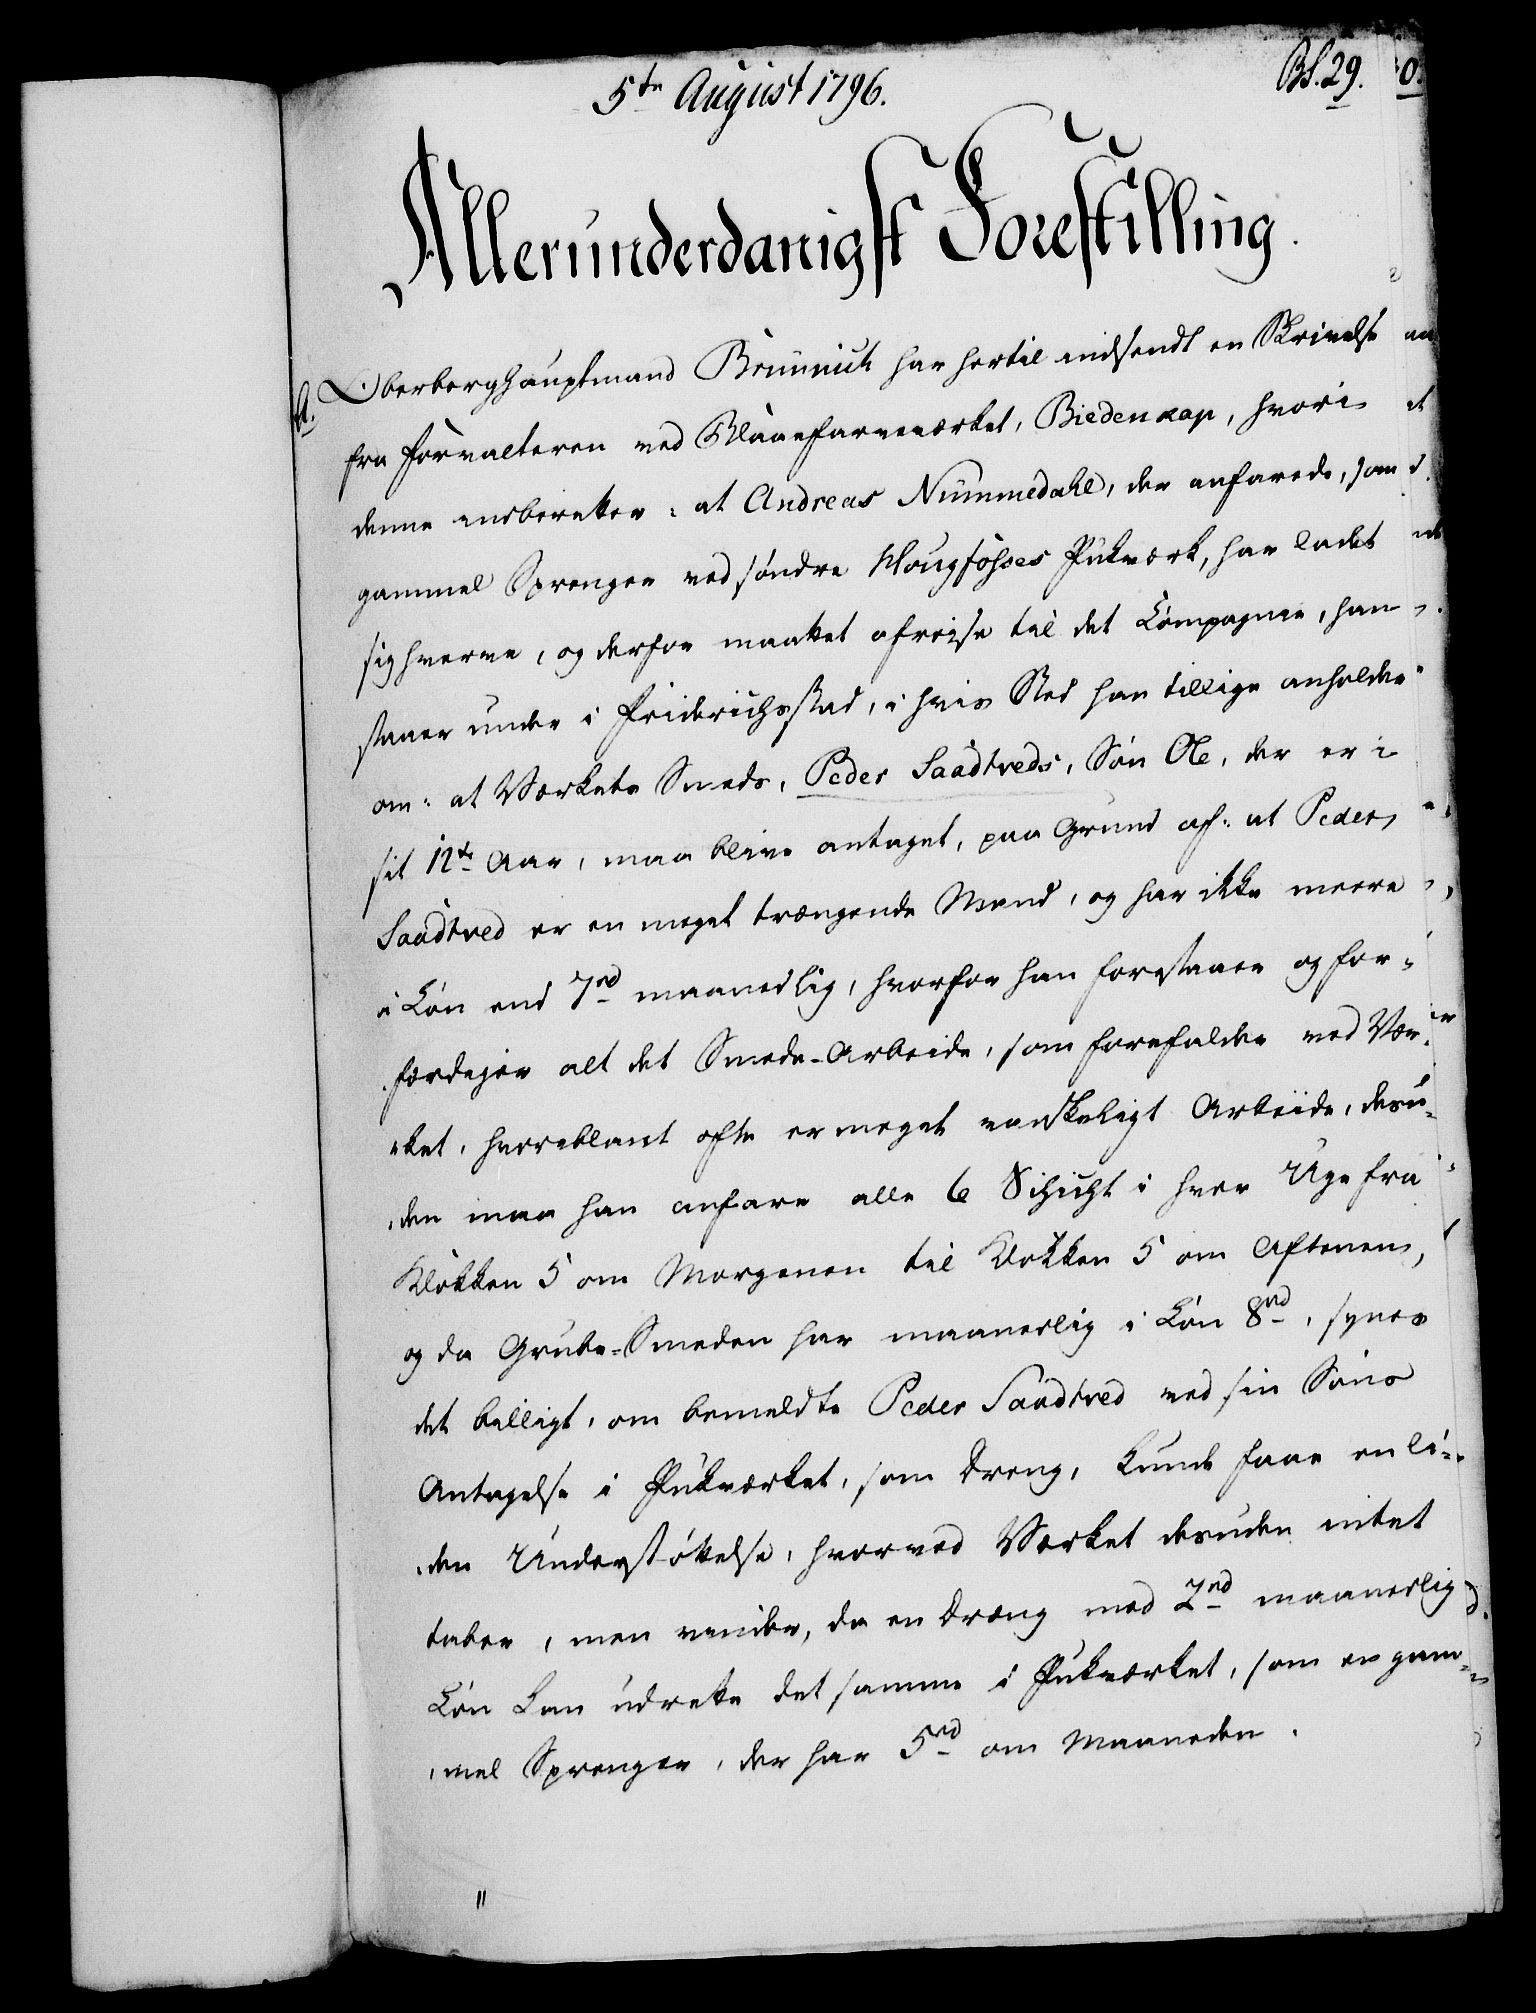 5te August 1796.
Bl. 29.
Allerunderdanigst Forestilling.
A. Oberberghauptmand Brünnich har hertil indsendt en Skrivelse
fra Forvalteren ved Blaaefarveværket, Biedenkap, hvori
denne indberetter: at Andreas Nummedahl, der anfarede, som
gammel Sprenger ved søndre Hougfosses Pukværk, har ladet
sig hverve, og derfor maattet afreise til det Compagnie, han
staaer under i Friderichsstad, i hvis Sted han tillige anholder
om: at Værkets Smeds, Peder Saadtveds, Søn Ole, der er i
sit 12te Aar, maa blive antaget, paa Grund af: at Peder
Saadtved er en meget trængende Mand, og har ikke meere
i Løn end 7rd maanedlig, hvorfor han forestaaer og for-
færdiger alt det Smede-Arbeide, som forefalder ved Vær-
ket, hvoriblant ofte er meget vanskeligt Arbeide, desu-
den maa han anfare alle 6 Schicht i hver Uge fra
Klokken 5 om Morgenen til Klokken 5 om Aftenen,
og da Grube-Smeden har maanedlig i Løn 8rd, synes
det billigt, om bemeldte Peder Saadtved ved sin Søns
Antagelse i Pukværket, som Dreng, kunde faae en li-
den Understøttelse, hvorved Værket desuden intet
taber, men vinder, da en Dreng med 2rd maanedlig
Løn kan udrette det samme i Pukværket, som en gam-
mel Sprenger, der har 5rd om Maaneden.